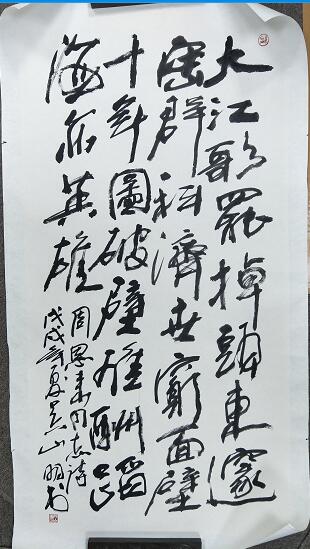 大江歌罢掉頭東邃
密群科濟世窮面壁
十年圖破壁難酬蹈
海亦英雄
周恩来同志詩
戊戌年夏吴山明书